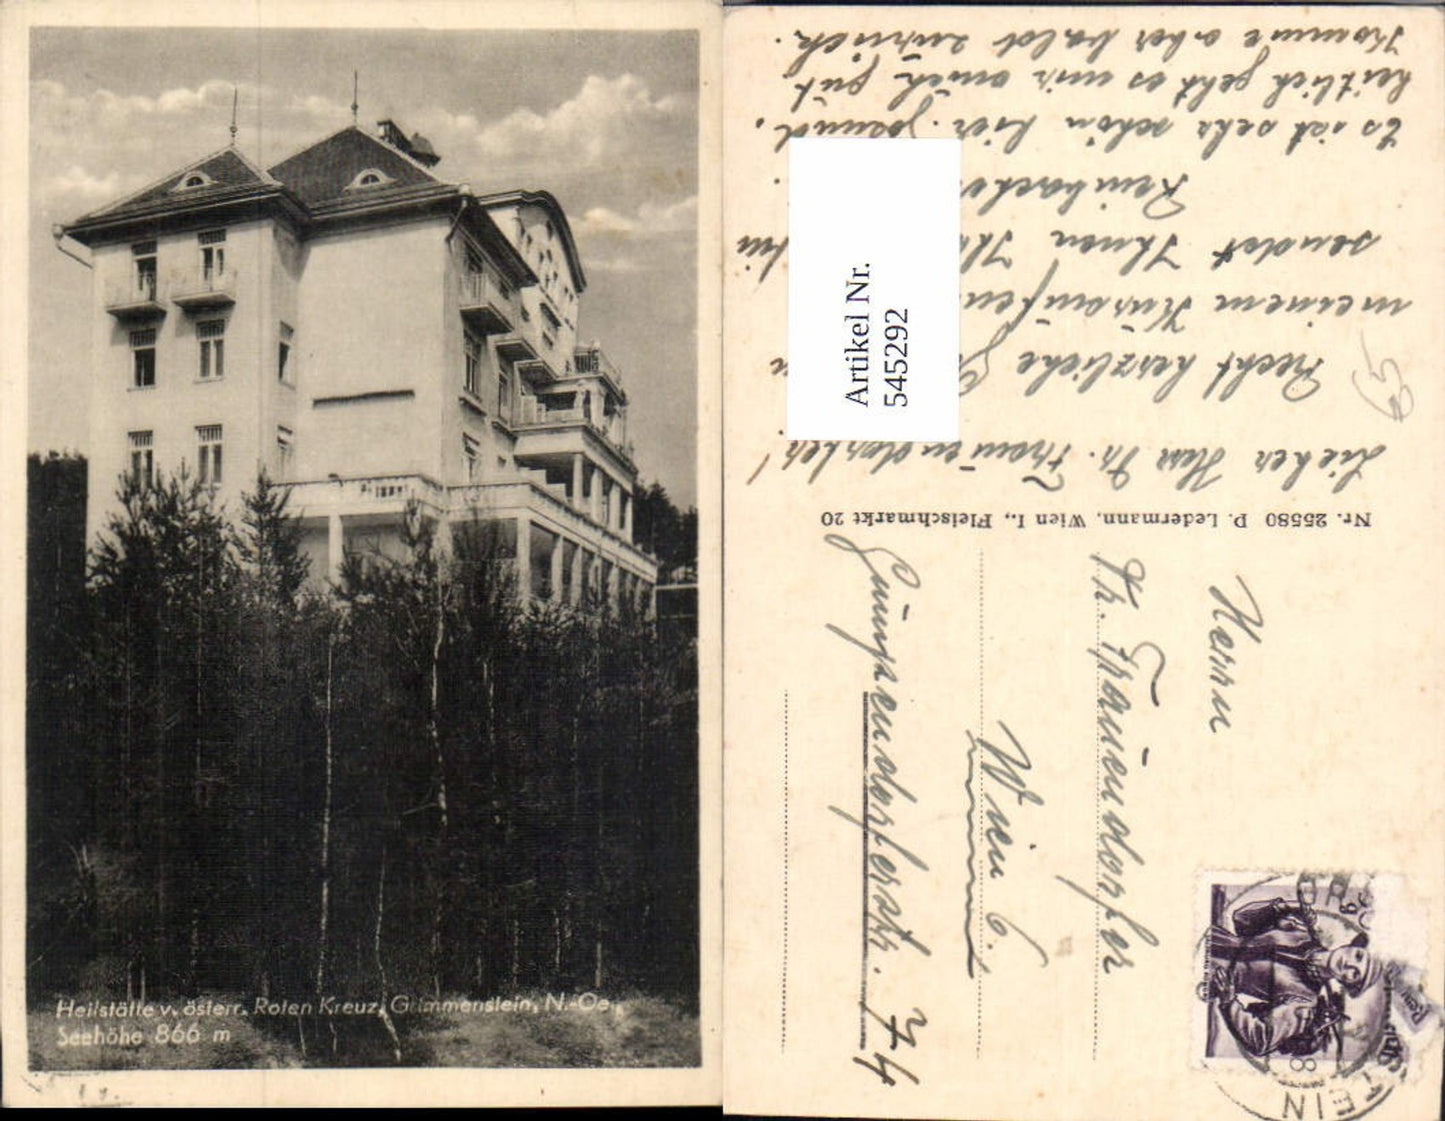 Heilstätte v. österr. Roten Kreuz, Grimmenstein, N.-Oe.,
Seehöhe 866 m
Artikel Nr.
545292
Lieber Herr Dr. Frauendorfer!
Recht herzliche
meinem
sendet Ihnen Ihr
Es ist sehr schön hier. Gesund-
heitlich geht es mir auch gut.
Komme aber bald zurück.
Nr. 25580 P. Ledermann, Wien I., Fleischmarkt 20
Herrn
Dr. Frauendorfer
Wien 6.
Gumpendorferstr. 74